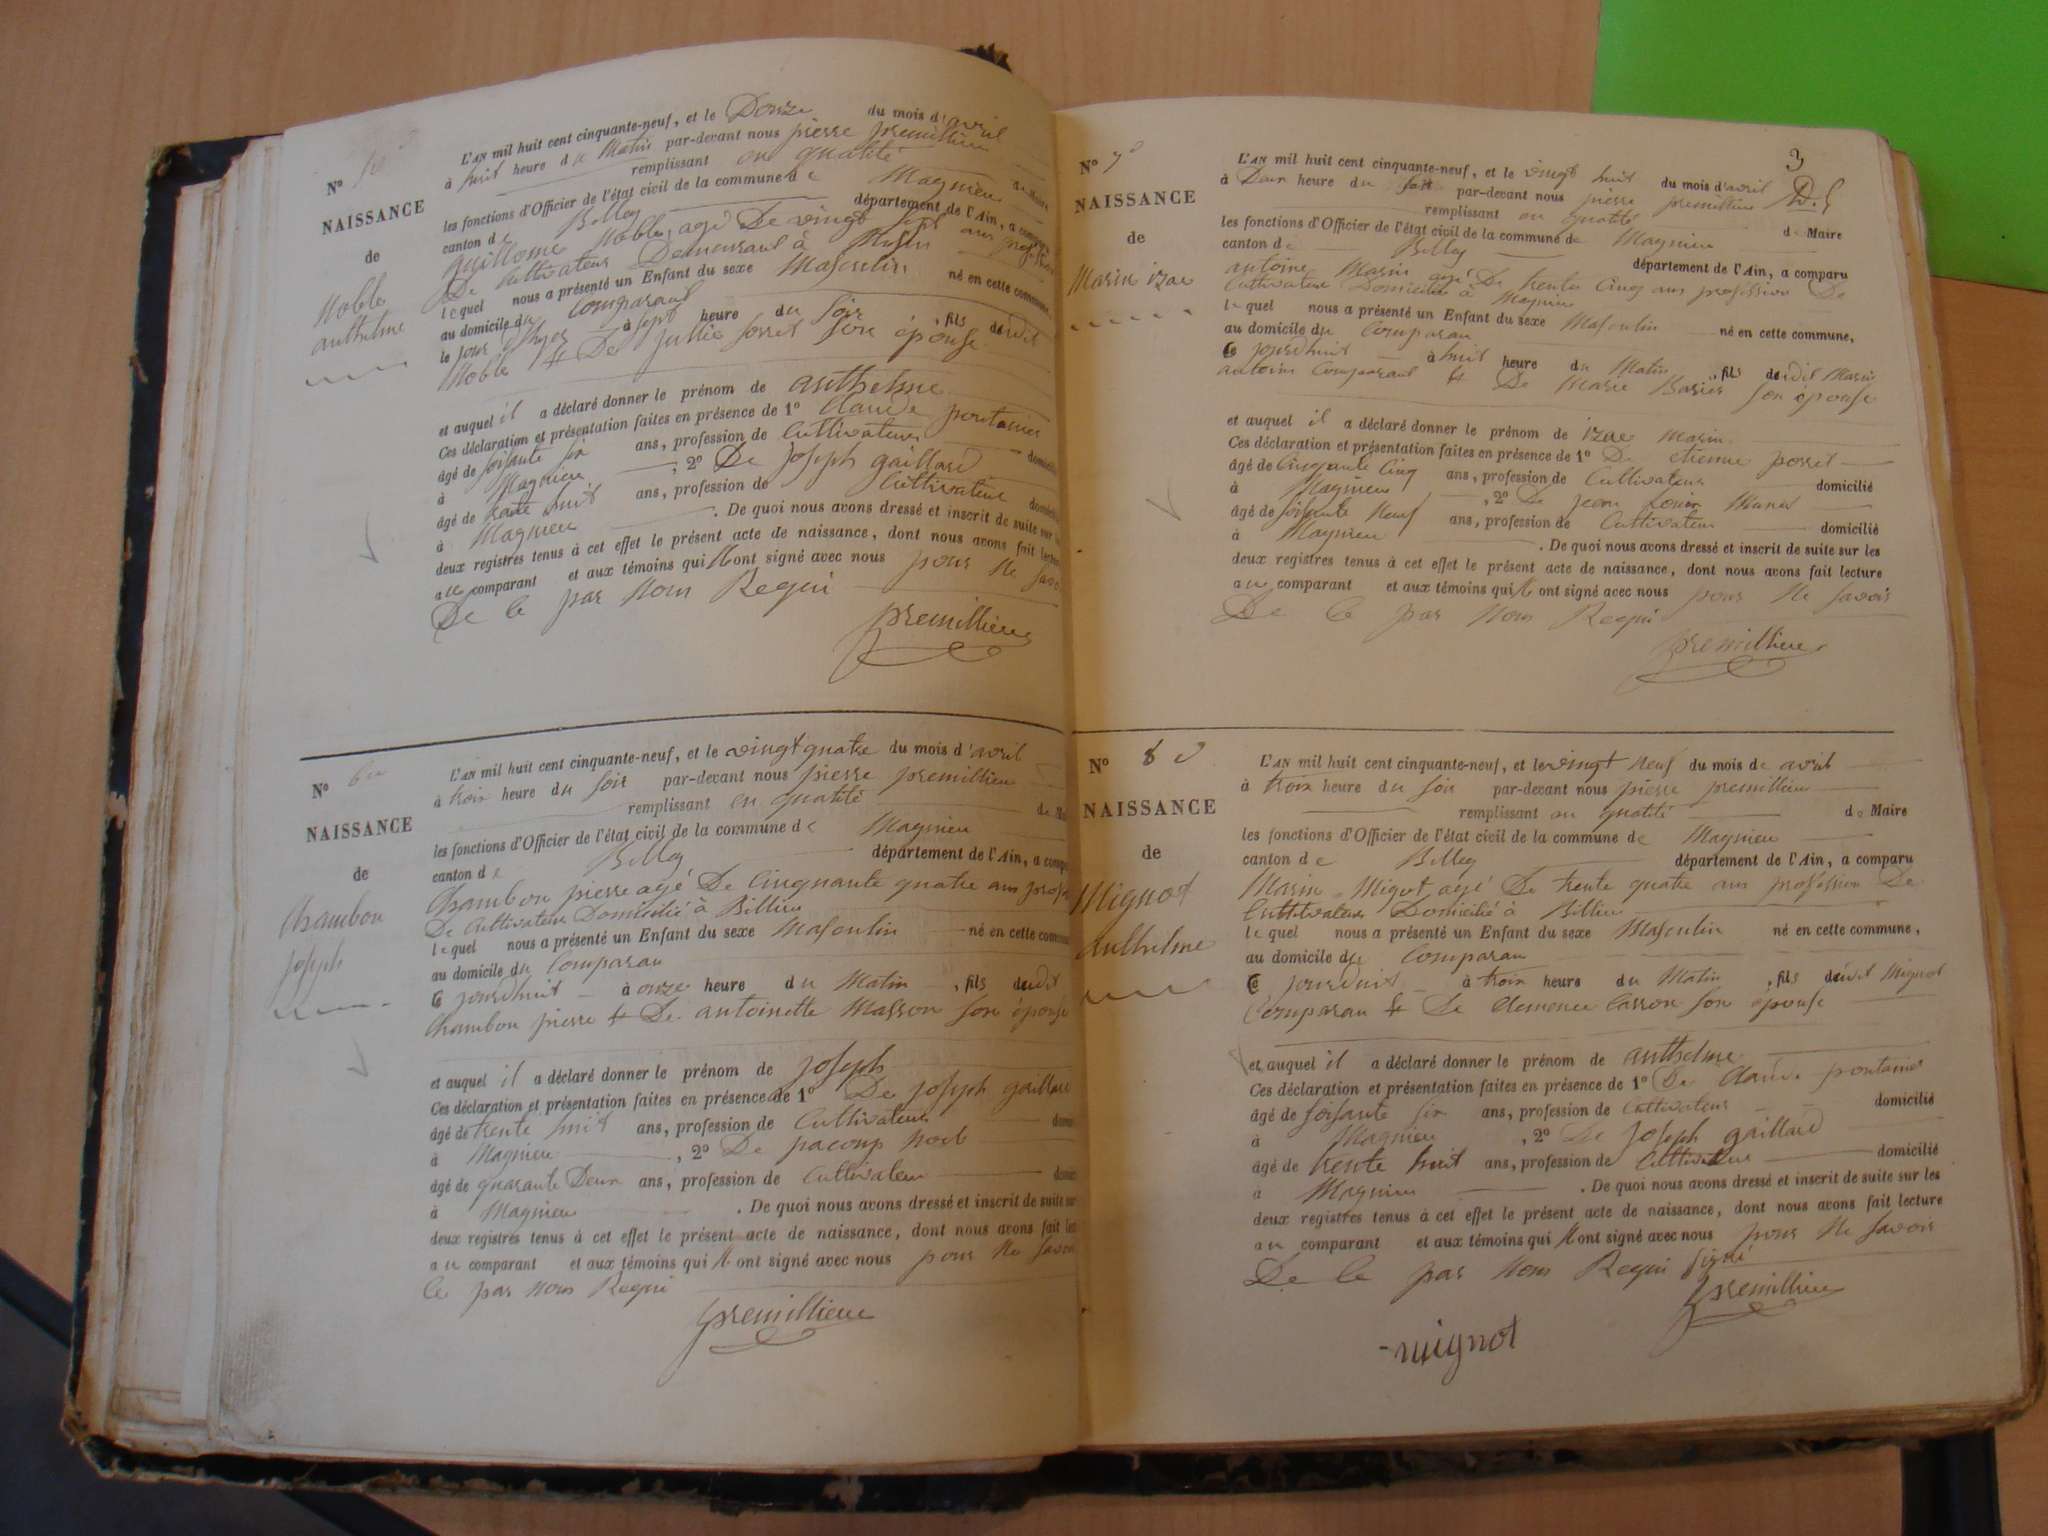 L'AN mil huit cent cinquante-neuf, et le Douze du mois d'avril
à huit heure du Matin par-devant nous pierre premillieu
remplissant en qualité de Maire
les fonctions d'Officier de l'état civil de la commune de Magnieu
canton de Belley département de l'Ain, a comparu
guillome Noble, agé De vingt sept ans profession
De Cultivateur Demeurant à
lequel nous a présenté un Enfant du sexe Masculin né en cette commune,
au domicile du Comparant
le jour d'hyer à sept heure du Soir, fils dudit
Noble & De jullie sorret son épouse
et auquel il a déclaré donner le prénom de anthelme
Ces déclaration et présentation faites en présence de 1° Claude pontanier
âgé de soisante six ans, profession de Cultivateur domicilié
à Magnieu, 2° De joseph gaillard
âgé de trente huit ans, profession de Cultivateur domicilié
à Magnieu. De quoi nous avons dressé et inscrit de suite sur les
deux registres tenus à cet effet le présent acte de naissance, dont nous avons fait lecture
au comparant et aux témoins qui N'ont signé avec nous pour Ne savoir
De Ce par Nous Requi
premillieu
N°
NAISSANCE
de
Noble
anthelme
N° 6
NAISSANCE
de
Chambon
joseph
L'AN mil huit cent cinquante-neuf, et le vingt quatre du mois d'avril
à trois heure du soir par-devant nous pierre premillieu
remplissant en qualité de Maire
les fonctions d'Officier de l'état civil de la commune de Magnieu
canton de Belley département de l'Ain, a comparu
Chambon pierre agé De Cinquante quatre ans profession
De Cultivateur Domicilié à Billieu
lequel nous a présenté un Enfant du sexe Masculin né en cette commune
au domicile du Comparan
Ce jourdhuit à onze heure du Matin, fils dudit
Chambon pierre & De antoinette Masson son épouse
et auquel il a déclaré donner le prénom de joseph
Ces déclaration et présentation faites en présence de 1° De joseph gaillard
âgé de trente huit ans, profession de Cultivateur domicilié
à Magnieu, 2° De
âgé de quarante Deux ans, profession de Cultivateur domicilié
à Magnieu. De quoi nous avons dressé et inscrit de suite sur
deux registres tenus à cet effet le présent acte de naissance, dont nous avons fait lecture
au comparant et aux témoins qui N'ont signé avec nous pour Ne savoir
Ce par Nous Requi
premillieu
3
N° 7
NAISSANCE
de
Marin izac
L'AN mil huit cent cinquante-neuf, et le vingt huit du mois d'avril
à Deux heure du soir par-devant nous pierre premillieu
remplissant en qualité de Maire
les fonctions d'Officier de l'état civil de la commune de Magnieu
canton de Belley département de l'Ain, a comparu
antoine Marin agé De trente Cinq ans profession De
Cultivateur Domicilié à Magnieu
lequel nous a présenté un Enfant du sexe Masculin né en cette commune,
au domicile du Comparan
Ce jourdhuit à huit heure du Matin, fils dudit Marin
antoine Comparant & De Marie son épouse
et auquel il a déclaré donner le prénom de izac Marin
Ces déclaration et présentation faites en présence de 1° De etienne porret
âgé de Cinquante Cinq ans, profession de Cultivateur domicilié
à Magnieu, 2° De jean Louis
âgé de soisante Neuf ans, profession de Cultivateur domicilié
à Magnieu. De quoi nous avons dressé et inscrit de suite sur les
deux registres tenus à cet effet le présent acte de naissance, dont nous avons fait lecture
au comparant et aux témoins qui N'ont signé avec nous pour Ne savoir
De Ce par Nous Requi
premillieu
N° 8
NAISSANCE
de
Mignot
anthelme
L'AN mil huit cent cinquante-neuf, et le vingt Neuf du mois de avril
à trois heure du soir par-devant nous pierre premillieu
remplissant en qualité de Maire
les fonctions d'Officier de l'état civil de la commune de Magnieu
canton de Belley département de l'Ain, a comparu
Marin Migot, agé De trente quatre ans profession De
Cultivateur Domicilié à Billieu
lequel nous a présenté un Enfant du sexe Masculin né en cette commune,
au domicile du Comparan
Ce jourdhuit à trois heure du Matin, fils dudit Mignot
Comparan & De Clemence Casson son épouse
et auquel il a déclaré donner le prénom de anthelme
Ces déclaration et présentation faites en présence de 1° De Claude pontanier
âgé de soisante six ans, profession de Cultivateur domicilié
à Magnieu, 2° De joseph gaillard
âgé de trente huit ans, profession de Cultivateur domicilié
à Magnieu. De quoi nous avons dressé et inscrit de suite sur les
deux registres tenus à cet effet le présent acte de naissance, dont nous avons fait lecture
au comparant et aux témoins qui N'ont signé avec nous pour Ne savoir
De Ce par Nous Requi signé
premillieu
mignot